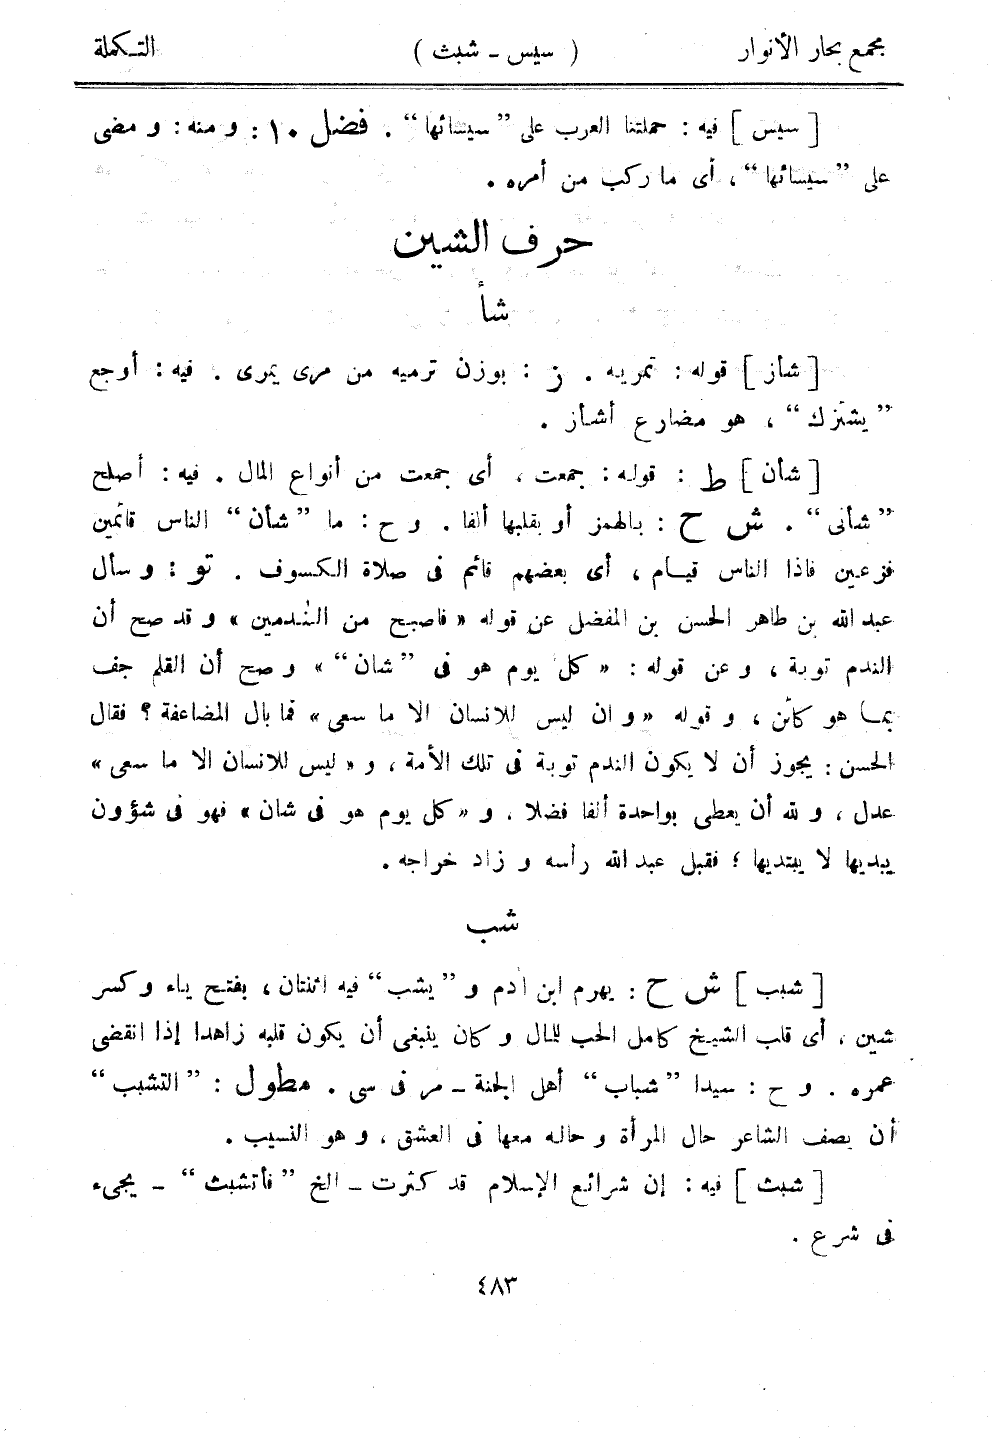 مجمع بحار الأنوار ( سيس - شبث ) التكملة
[ سيس ] فيه : حملتنا العرب على ”سيسائها“ . فضل ١٠ : و منه : و مضى
على ”سيسائها“ ، أى ما ركب من أمره .
حرف الشين
شأ
[ شأز ] قوله : تمريه . ز : بوزن ترميه من مرى يمرى . فيه : أوجع
”يشئزك“ ، هو مضارع أشأز .
[ شأن ] ط : قوله : جمعت ، أى جمعت من أنواع المال . فيه : أصلح
”شأنى“ . ش ح : بالهمز أو بقلبها ألفا . و ح : ما ”شأن“ الناس قائمين
فزعين فاذا الناس قيام ، أى بعضهم قائم فى صلاة الكسوف . تو : و سأل
عبد الله بن طاهر الحسن بن المفضل عن قوله « فاصبح من النٰدمين » و قد صح أن
الندم توبة ، و عن قوله : « كل يوم هو فى ”شان“ » و صح أن القلم جف
بما هو كائن ، و قوله « و ان ليس للانسان الا ما سعى » فما بال المضاعفة ؟ فقال
الحسن : يجوز أن لا يكون الندم توبة فى تلك الأمة ، و « ليس للانسان الا ما سعى »
عدل ، و لله أن يعطى بواحدة ألفا فضلا ، و « كل يوم هو فى شان » فهو فى شؤون
يبديها لا يبتديها ؛ فقبل عبد الله رأسه و زاد خراجه .
شب
[ شبب ] ش ح : يهرم ابن ادم و ”يشب“ فيه اثنتان ، بفتح ياء و كسر
شين ، أى قلب الشيخ كامل الحب للمال و كان ينبغى أن يكون قلبه زاهدا إذا انقضى
عمره . و ح : سيدا ”شباب“ أهل الجنة - مر فى سى . مطول : ”التشبب“
أن يصف الشاعر حال المرأة و حاله معها فى العشق ، و هو النسيب .
[ شبث ] فيه : إن شرائع الإسلام قد كثرت - الخ ”فأتشبث“ - يجىء
فى شرع .
٤٨٣